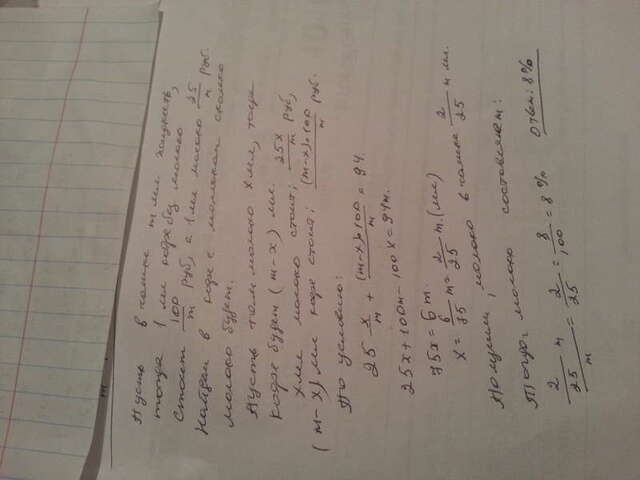 Пусть в чашке m мл жидкость,
тогда 1 мл кофе без молока
стоит 100/m руб, а 1 мл молоко 25/m руб.
Найдем в кофе с молоком сколько
молока будет.
Пусть там молоко x мл, тогда
кофе будет (m-x) мл.
x мл молоко стоит; 25x/m руб,
(m-x) мл кофе стоит; (m-x)·100/m руб.
По условию:
25 x/m + (m-x)·100/m = 94.
25x+100m-100x=94m.
75x=6m.
x = 6/75 m = 2/25 m. (мл)
Получим, молоко в чашке 2/25 m мл.
Тогда молоко составляет:
2/25 m / m = 2/25 = 8/100 = 8% Ответ: 8%